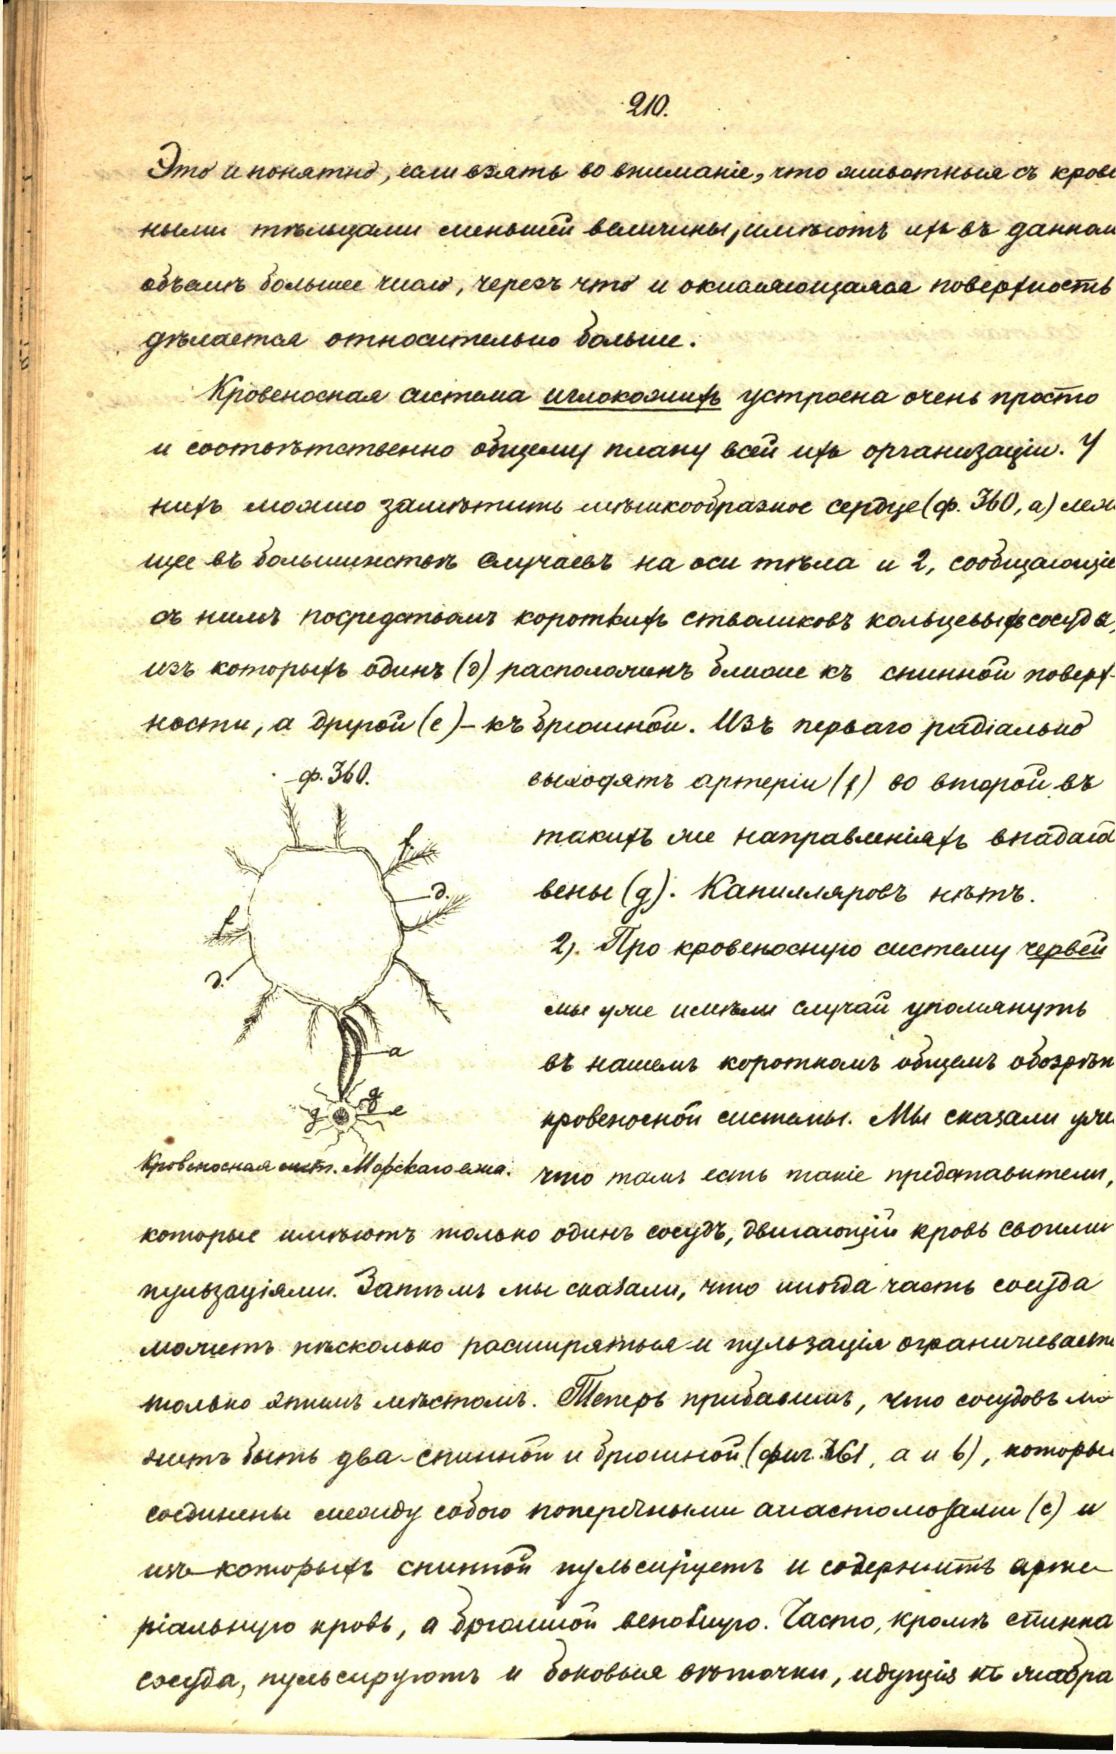 210.
Это и понятно, если взять во вниманіе, что животныя съ крове
ными тѣльцами меньшей величины, имѣютъ ихъ въ данном
объемѣ большее число, черезъ что и окисляющаяся поверхность
дѣлается относительно больше.
Кровеносная система иглокожихъ устроена очень просто
и соотвѣтственно общему плану всей ихъ организаціи. У
нихъ можно замѣтить мѣшкообразное сердце (ф. 360, а) леж
щее въ большинствѣ случаевъ на оси тѣла и 2, сообщающіе
съ нимъ посредствомъ короткихъ стволиковъ кольцевыхъ сосуда,
изъ которыхъ одинъ (д) расположенъ ближе къ спинной поверх-
ности, а другой (е) - къ брюшной. Изъ перваго радіально
ф. 360.
выходятъ артеріи (f) во второй въ
такихъ же направленіяхъ впадаю
вены (g). Капилляровъ нѣтъ.
2). Про кровеносную систему червей
мы уже имѣли случай упомянуть
въ нашемъ короткомъ общемъ обозрѣн
кровеносной системы. Мы сказали уже
f.
д.
f.
д.
а
g
g
е
Кровеносная сист. Морскаго ежа.
что тамъ есть такіе представители,
которые имѣютъ только одинъ сосудъ, двигающій кровь своими
пульзаціями. Затѣмъ мы сказали, что иногда часть сосуда
можетъ нѣсколько расширяться и пульзація ограничивается
только этимъ мѣстомъ. Теперь прибавимъ, что сосудовъ мо
жетъ быть два - спинной и брюшной (фиг. 361, а и b), которые
соединены между собою поперечными анастомозами (с) и
изъ которыхъ спинной пульсируетъ и содержитъ арте-
ріальную кровь, а брюшной венозную. Часто, кромѣ спинна
сосуда, пульсируютъ и боковыя вѣточки, идущія къ жабра